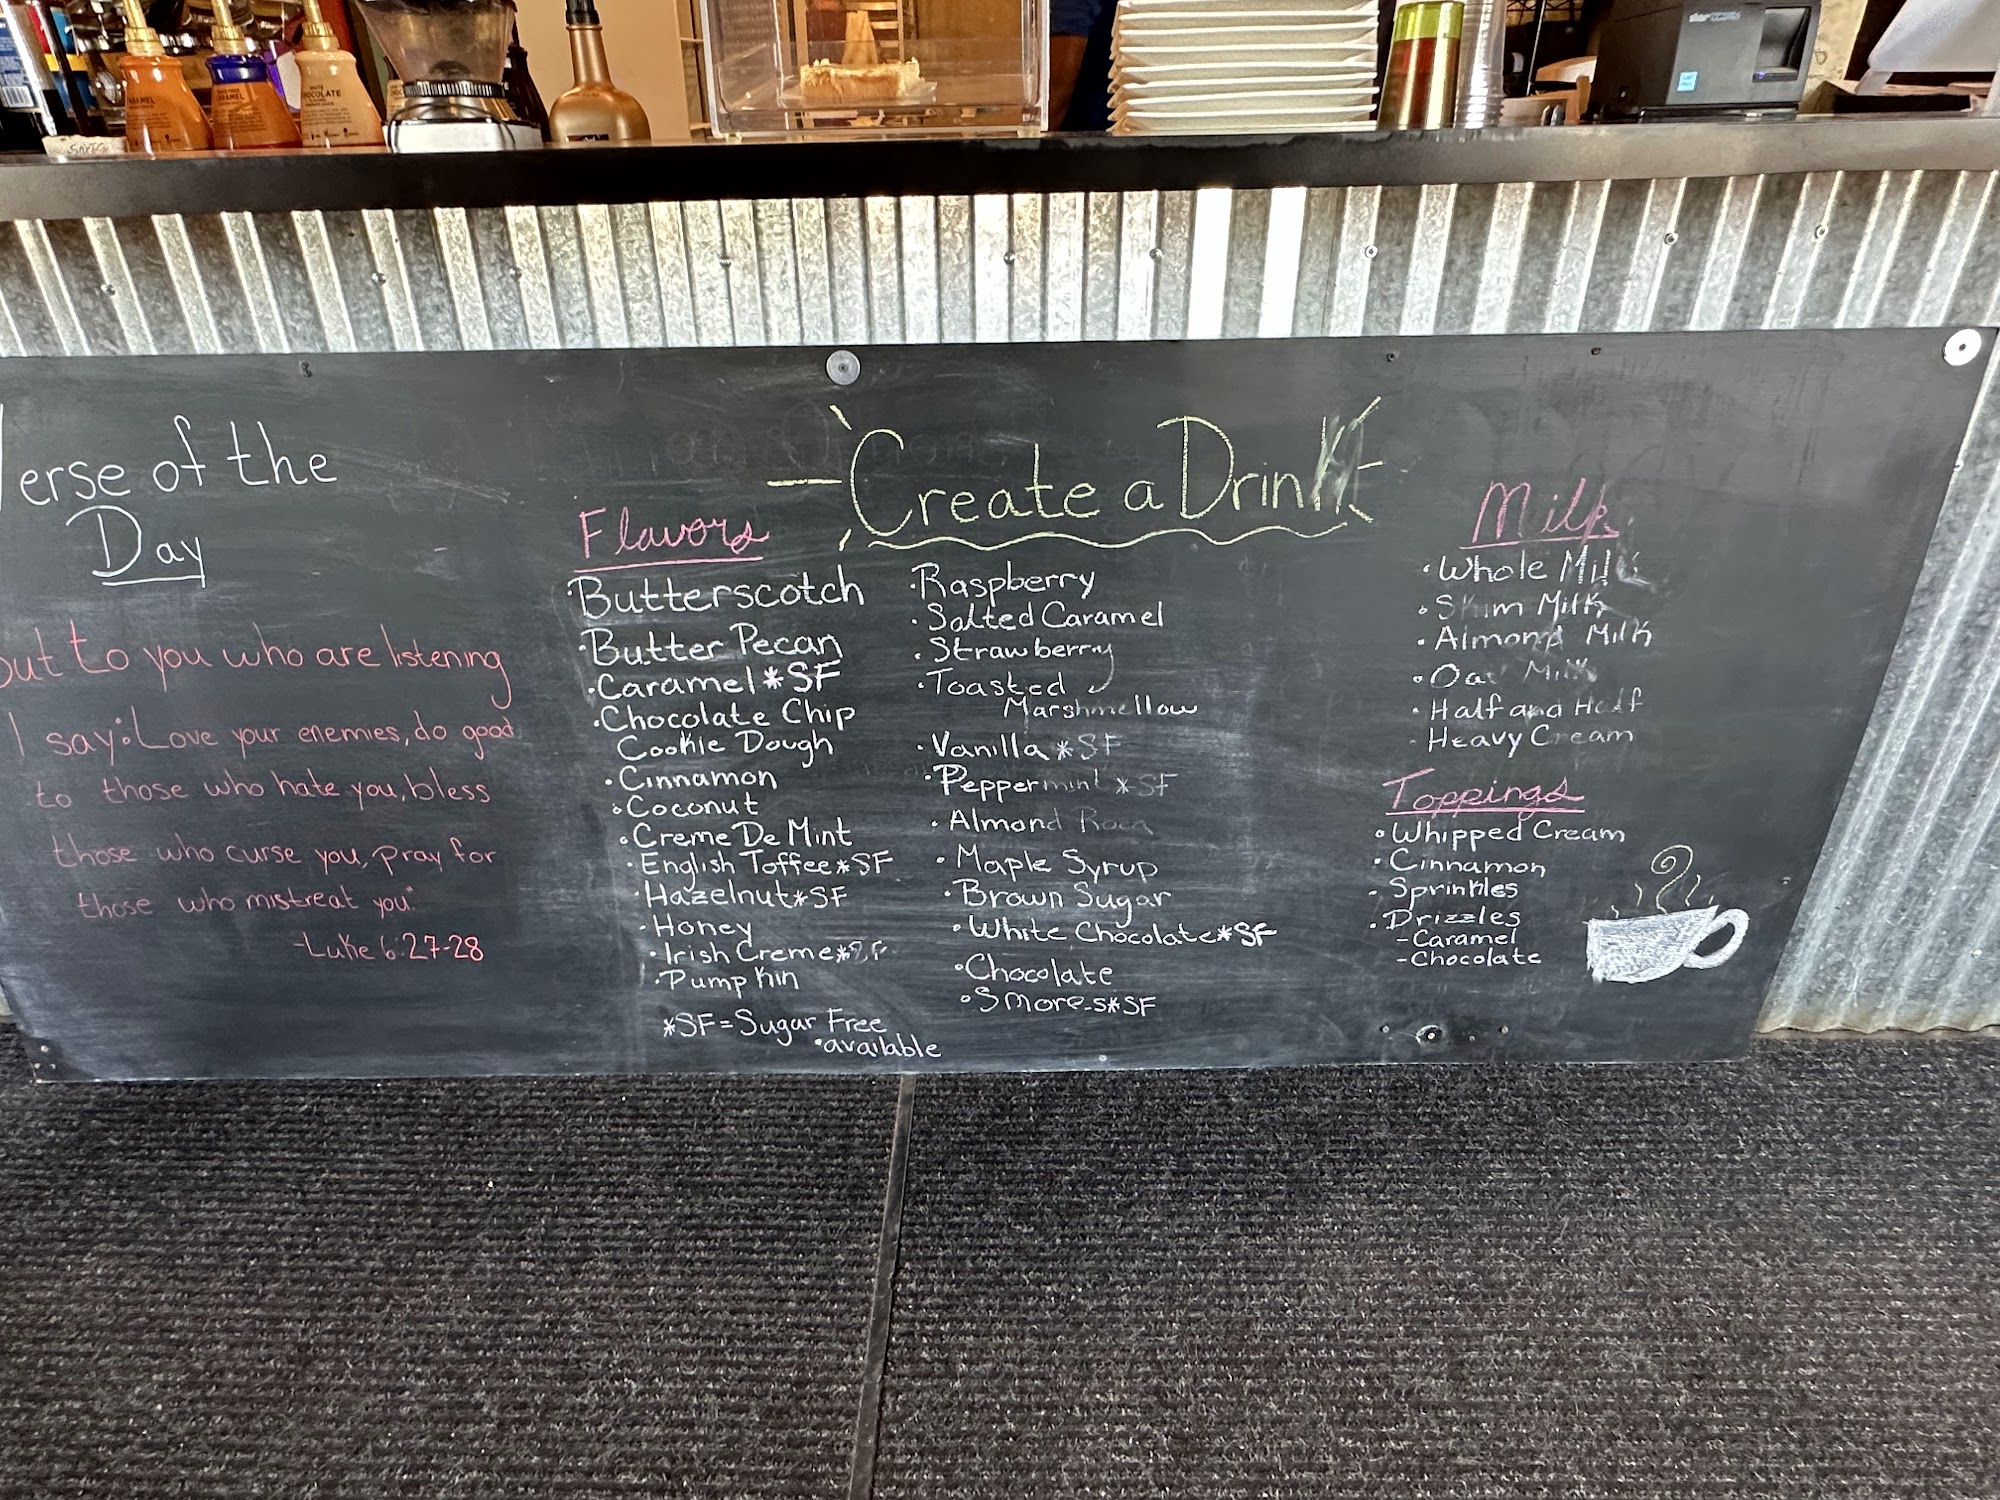 CARAMEL
CARAMEL
WHITE
CHOCOLATE
star
erse of the
Day
but to you who are listening
I say: Love your enemies, do good
to those who hate you, bless
those who curse you, pray for
those who mistreat you."
-Luke 6:27-28
Create a Drink
Flavors
·Butterscotch
·Butter Pecan
·Caramel *SF
·Chocolate Chip
Cookie Dough
·Cinnamon
·Coconut
·Creme De Mint
·English Toffee *SF
·Hazelnut *SF
·Honey
·Irish Creme *SF
·Pumpkin
*SF = Sugar Free
·available
·Raspberry
·Salted Caramel
·Strawberry
·Toasted
Marshmellow
·Vanilla *SF
·Peppermint *SF
·Almond Roca
·Maple Syrup
·Brown Sugar
·White Chocolate *SF
·Chocolate
·Smores *SF
Milk
·Whole Milk
·Skim Milk
·Almond Milk
·Oat Milk
·Half and Half
·Heavy Cream
Toppings
·Whipped Cream
·Cinnamon
·Sprinkles
·Drizzles
-Caramel
-Chocolate